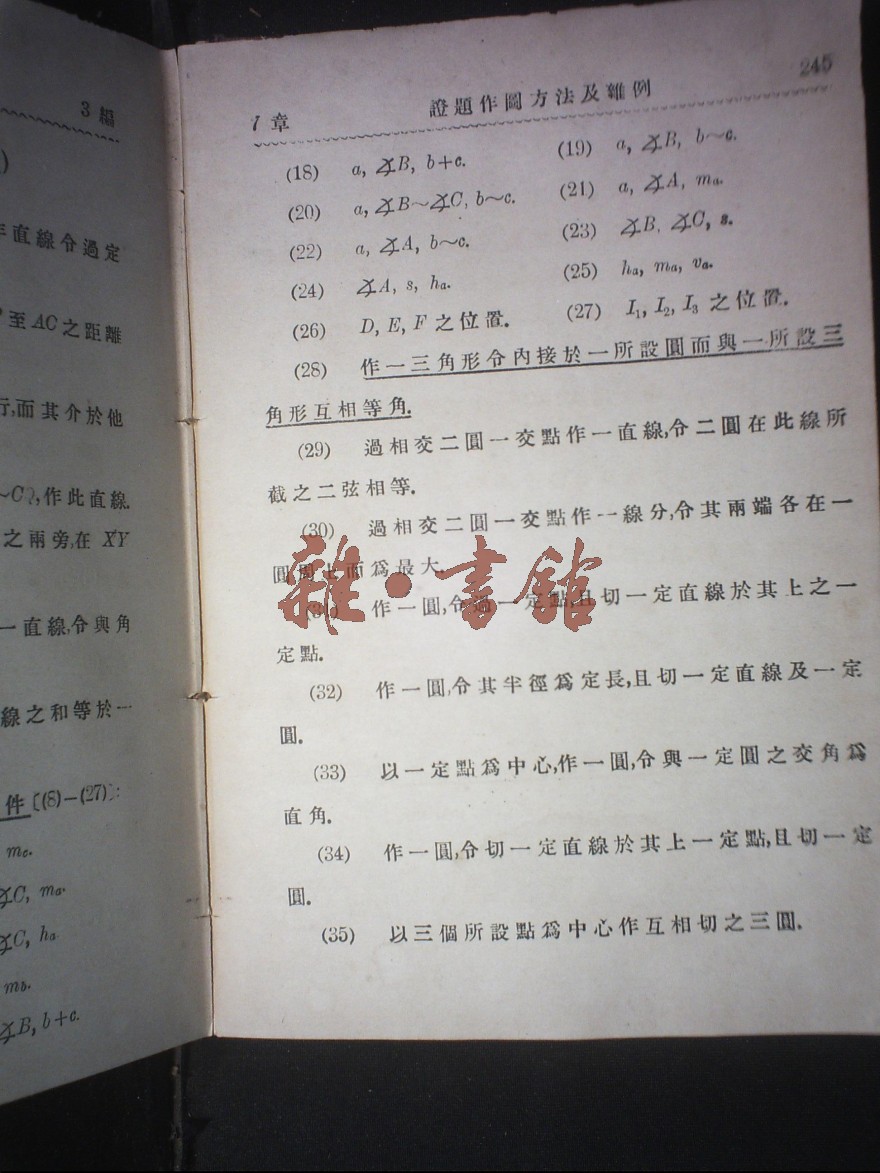 3編
)
直線令過定
至AC之距離
行,而其介於他
~C),作此直線.
之兩旁,在 XY
一直線,令與角
線之和等於一
件〔(8)—(27)〕:
mc.
∡C, ma.
∡C, ha
mb.
∡B, b+c.
1章 證題作圖方法及雜例 245
(18) a, ∡B, b+c. (19) a, ∡B, b~c.
(20) a, ∡B~∡C, b~c. (21) a, ∡A, ma.
(22) a, ∡A, b~c. (23) ∡B, ∡C, s.
(24) ∡A, s, ha. (25) ha, ma, va.
(26) D, E, F 之位置. (27) I1, I2, I3 之位置.
(28) 作一三角形令內接於一所設圓而與一所設三
角形互相等角.
(29) 過相交二圓一交點作一直線,令二圓在此線所
截之二弦相等.
(30) 過相交二圓一交點作一線分,令其兩端各在一
圓周上而爲最大.
(31) 作一圓,令過一定點,且切一定直線於其上之一
定點.
(32) 作一圓,令其半徑爲定長,且切一定直線及一定
圓.
(33) 以一定點爲中心,作一圓,令與一定圓之交角爲
直角.
(34) 作一圓,令切一定直線於其上一定點,且切一定
圓.
(35) 以三個所設點爲中心作互相切之三圓.
雜·書館